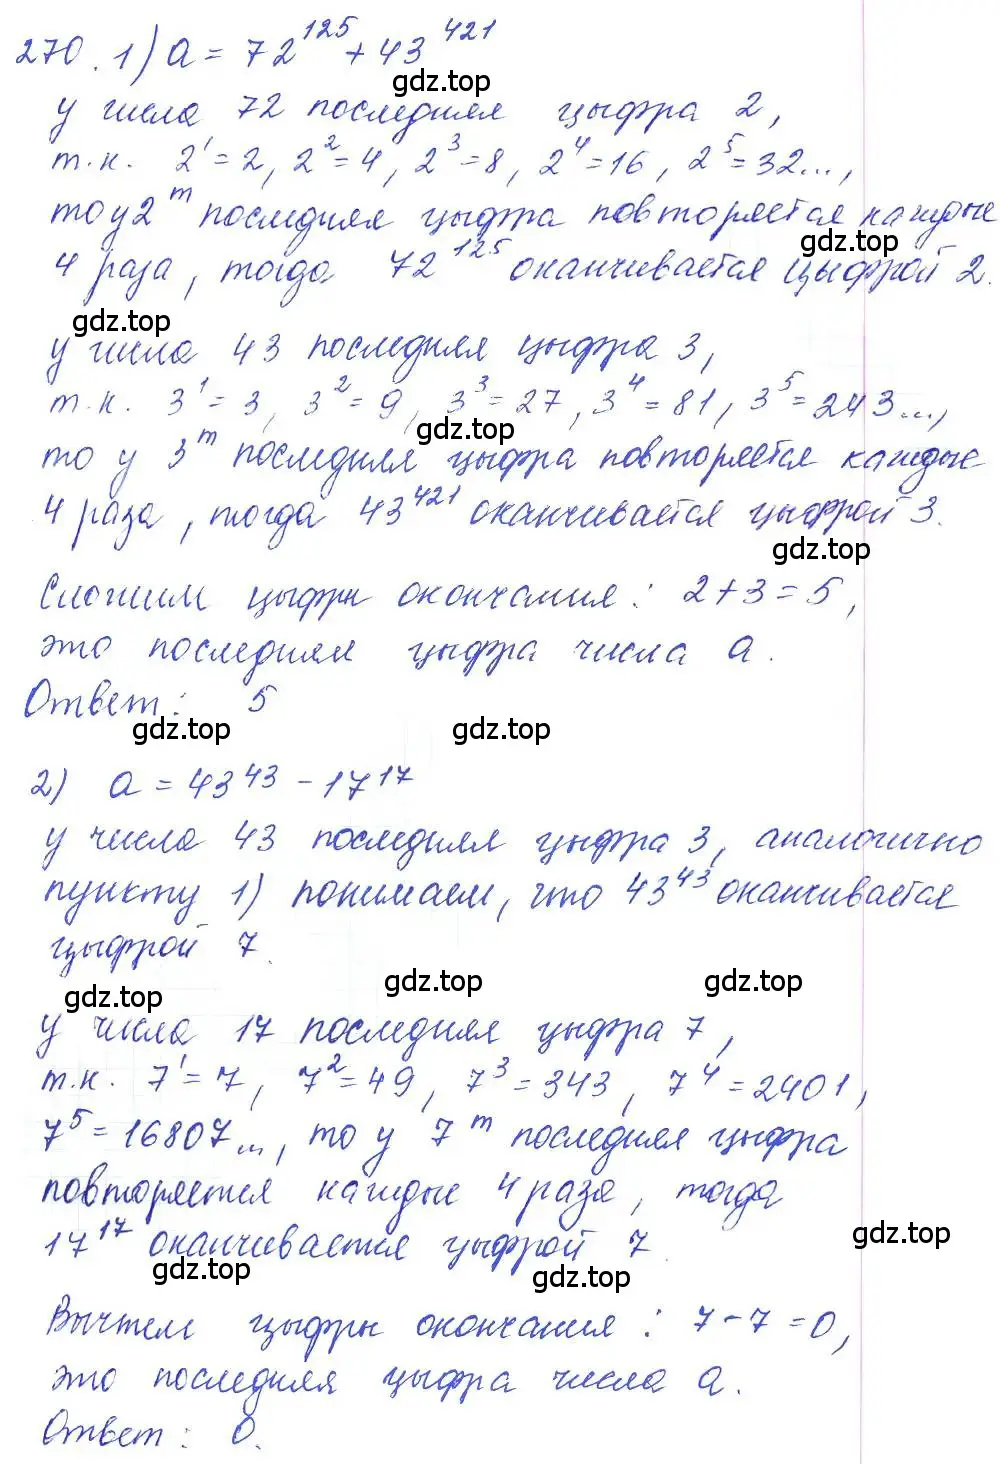 270. 1) a = 72^125 + 43^421
gdz.top
у числа 72 последняя цыфра 2,
т.к. 2^1 = 2, 2^2 = 4, 2^3 = 8, 2^4 = 16, 2^5 = 32...,
то у 2^m последняя цыфра повторяется каждые
gdz.top
4 раза, тогда 72^125 оканчивается цыфрой 2.
gdz.top
у числа 43 последняя цыфра 3,
т.к. 3^1 = 3, 3^2 = 9, 3^3 = 27, 3^4 = 81, 3^5 = 243...,
gdz.top
то у 3^m последняя цыфра повторяется каждые
4 раза, тогда 43^421 оканчивается цыфрой 3.
gdz.top
Сложим цыфры окончания: 2 + 3 = 5,
это последняя цыфра числа a.
Ответ: 5
gdz.top gdz.top
2) a = 43^43 - 17^17
у числа 43 последняя цыфра 3, аналогично
пункту 1) понимаем, что 43^43 оканчивается
цыфрой 7.
gdz.top gdz.top gdz.top
у числа 17 последняя цыфра 7,
т.к. 7^1 = 7, 7^2 = 49, 7^3 = 343, 7^4 = 2401,
7^5 = 16807..., то у 7^m последняя цыфра
повторяется каждые 4 раза, тогда
17^17 оканчивается цыфрой 7.
gdz.top gdz.top gdz.top
Вычтем цыфры окончания: 7 - 7 = 0,
это последняя цыфра числа a.
Ответ: 0.